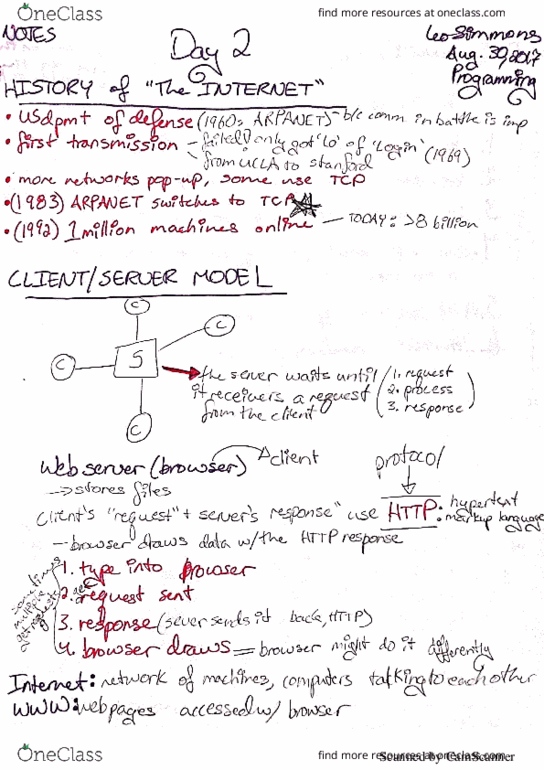 OneClass
find more resources at oneclass.com
NOTES
Day 2
Leo Simmons
Aug. 30, 2017
Programming
HISTORY of "The INTERNET"
• US dpmt of defense (1960s ARPANET) - b/c comm in battle is imp
• first transmission - failed! only got 'lo' of 'login' (1969)
- from UCLA to stanford
• more networks pop-up, some use TCP
• (1983) ARPANET switches to TCP
• (1992) 1 million machines online — TODAY: >8 billion
CLIENT/SERVER MODEL
C
C
C
S
C
the server waits until
it receivers a request
from the client
1. request
2. process
3. response
Web server (browser) client
-> stores files
protocol
client's "request" + server's response" use HTTP: hypertext
markup language
- browser draws data w/ the HTTP response
sometimes
multiple
get requests
1. type into browser
2. get request sent
3. response (sever sends it back, HTTP)
4. browser draws = browser might do it differently
Internet: network of machines, computers talking to each other
WWW: webpages accessed w/ browser
OneClass
find more resources at oneclass.com
Scanned by CamScanner